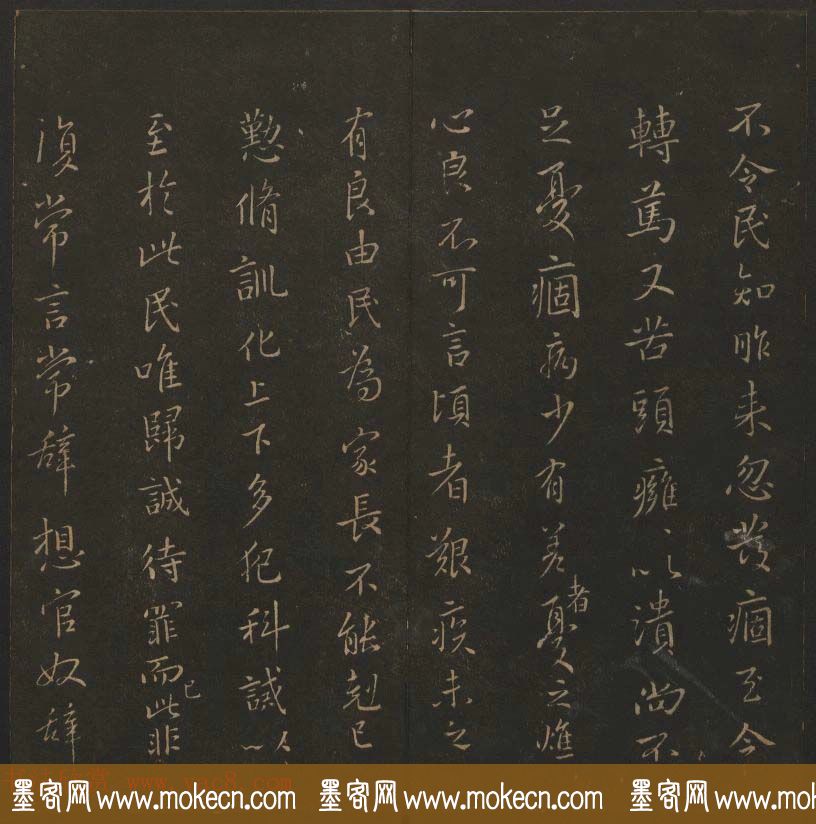 不令民知昨来忽发痼至今
轉篤又苦頭癰以潰尚不
足憂痼病少有差者憂之燋
心良不可言頃者艱疾未之
有良由民為家長不能剋己
懃脩訓化上下多犯科誡以
至於此民唯歸誠待罪而此非
復常言常辭想官奴辭
墨客网 www.mokecn.com 墨客网 www.mokecn.com 墨客网 www.mokecn.com